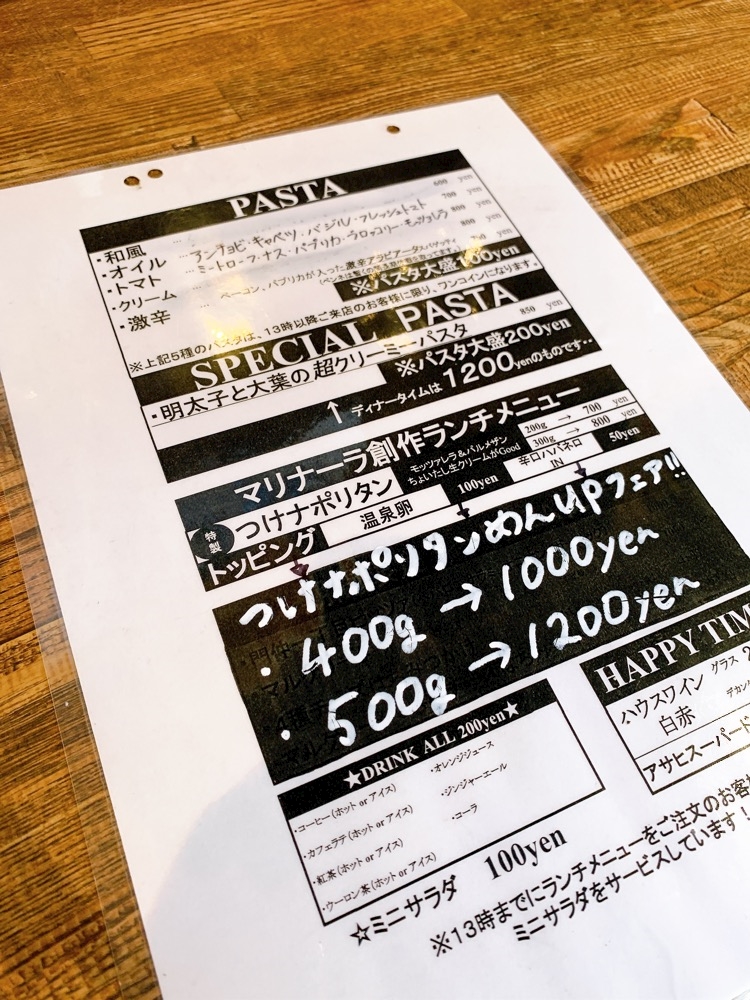 PASTA
・和風 600 yen
・オイル … アンチョビ・キャベツ・バジル・フレッシュトマト 700 yen
・トマト … ミートローフ・ナス・パプリカ・ブロッコリー・モッツァレラ 800 yen
・クリーム 800 yen
・激辛 … ベーコン、パプリカが入った激辛アラビアータスパゲッティ yen
※パスタ大盛100yen
※上記5種のパスタは、13時以降ご来店のお客様に限り、ワンコインになります。
SPECIAL PASTA
・明太子と大葉の超クリーミーパスタ 850 yen
※パスタ大盛200yen
↑ ディナータイムは1200yenのものです・・
マリナーラ創作ランチメニュー
特製 つけナポリタン
モッツァレラ&パルメザン
ちょいたし生クリームがGood
200g → 700 yen
300g → 800 yen
トッピング 温泉卵 100yen 辛口ハバネロIN 50yen
つけナポリタンめんupフェア!!
・400g → 1000yen
・500g → 1200yen
★DRINK ALL 200yen★
・コーヒー(ホット or アイス) ・オレンジジュース
・カフェラテ(ホット or アイス) ・ジンジャーエール
・紅茶(ホット or アイス) ・コーラ
・ウーロン茶(ホット or アイス)
HAPPY TIM
ハウスワイン グラス
白赤 デカン
アサヒスーパード
☆ミニサラダ 100yen
※13時までにランチメニューをご注文のお客
ミニサラダをサービスしています！